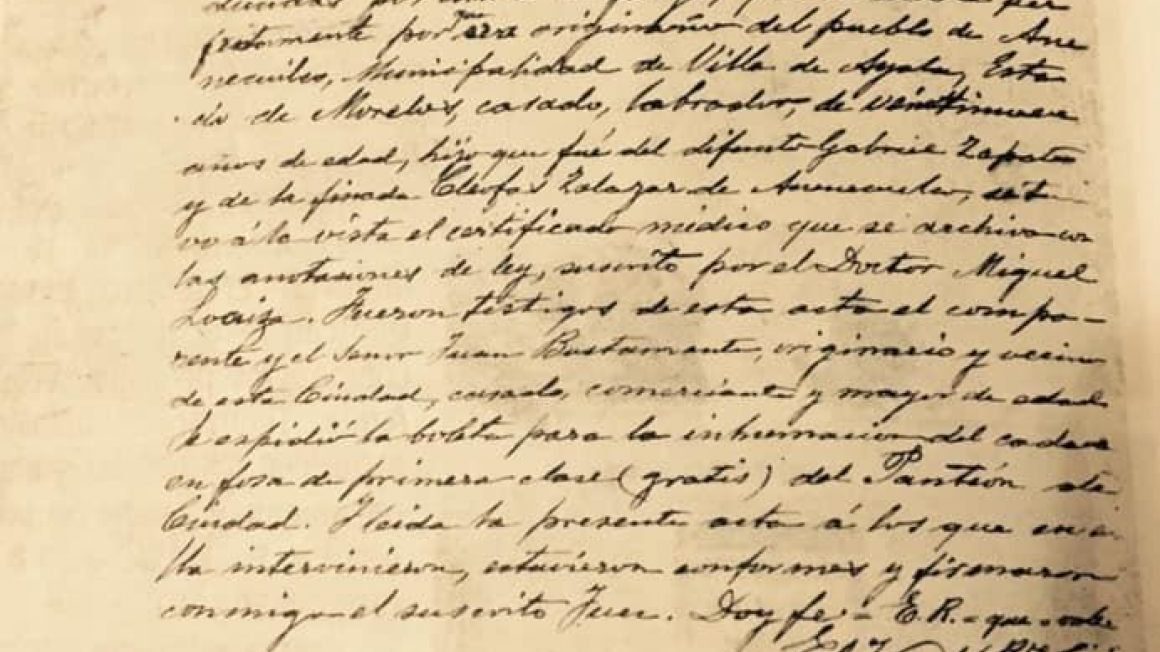 por
fritamente por que era originario del pueblo de Ane
necuilco, Municipalidad de Villa de Ayala, Esta
do de Morelos, casado, labrador, de veintinueve
años de edad, hijo que fué del difunto Gabriel Zapata
y de la finada Cleofas Zalazar de Anenecuilco, se tu
vo á la vista el certificado médico que se archiva con
las anotasiones de ley, suscrito por el Doctor Miguel
Loaiza. Fueron testigos de esta acta el compa-
rente y el Senor Juan Bustamante, originario y vecino
de esta Ciudad, casado, comerciante y mayor de edad
Se espidió la boleta para la inhumacion del cadaver
en fosa de primera clase (gratis) del Panteón de la
Ciudad. Y leida la presente acta á los que en e
lla intervinieron, estuvieron conformes y firmaron
conmigo el suscrito Juez. Doy fe - E.R. - que - vale